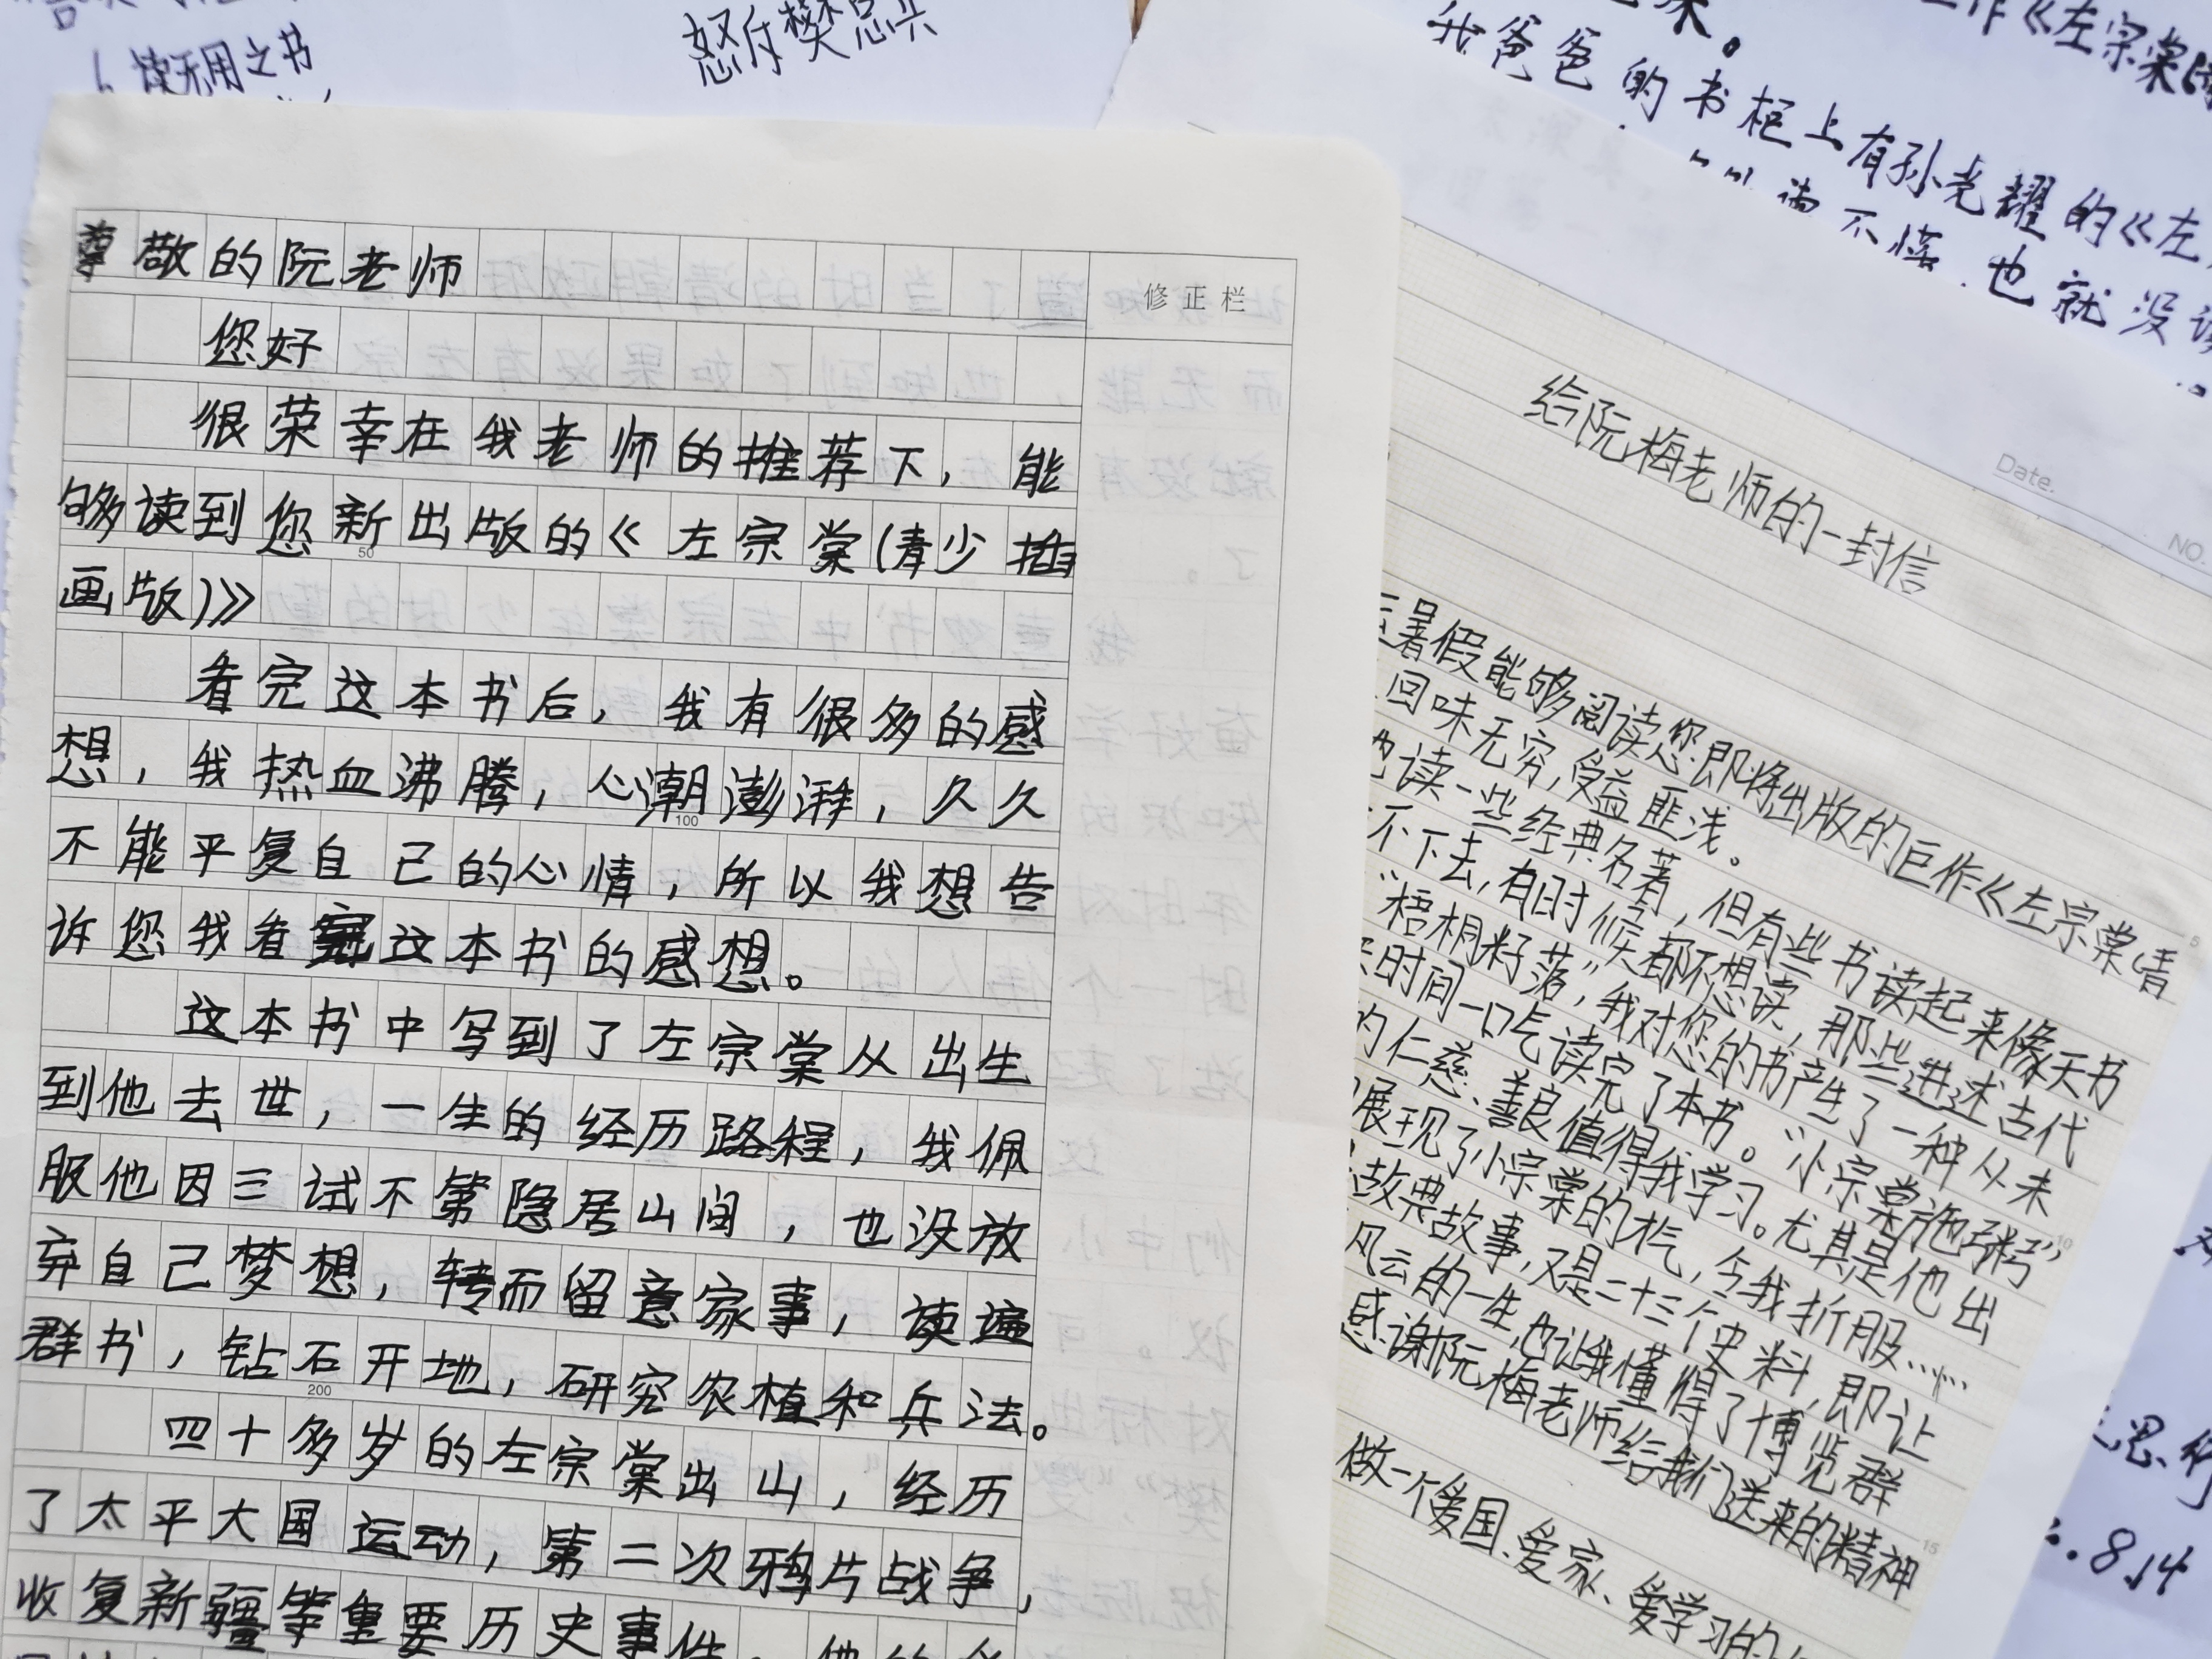 读无用之书
怒斥樊总兵
尊敬的阮老师
修正栏
您好
很荣幸在我老师的推荐下，能
够读到您新出版的《左宗棠(青少插
画版)》
看完这本书后，我有很多的感
想，我热血沸腾，心潮澎湃，久久
不能平复自己的心情，所以我想告
诉您我看完这本书的感想。
这本书中写到了左宗棠从出生
到他去世，一生的经历路程，我佩
服他因三试不第隐居山间，也没放
弃自己梦想，转而留意家事，读遍
群书，钻石开地，研究农植和兵法。
四十多岁的左宗棠出山，经历
了太平大国运动，第二次鸦片战争，
收复新疆等重要历史事件
50
100
200
作《左宗棠
我爸爸的书柜上有孙光耀的《左
不懂，也就没读
Date.
NO.
给阮梅老师的一封信
暑假能够阅读您即将出版的巨作《左宗棠青
回味无穷，受益匪浅。
读一些经典名著，但有些书读起来像天书
不下去，有时候都不想读，那些讲述古代
“梧桐籽落”，我对您的书产生了一种从未
时间一口气读完了本书。“小宗棠施粥”
的仁慈、善良值得我学习。尤其是他出
展现了小宗棠的才气，令我折服……
故典故事，又是二十三个史料，即让
风云的一生，也让我懂得了博览群
感谢阮梅老师给我们送来的精神
做一个爱国、爱家、爱学习的
5
10
15
思
8.14